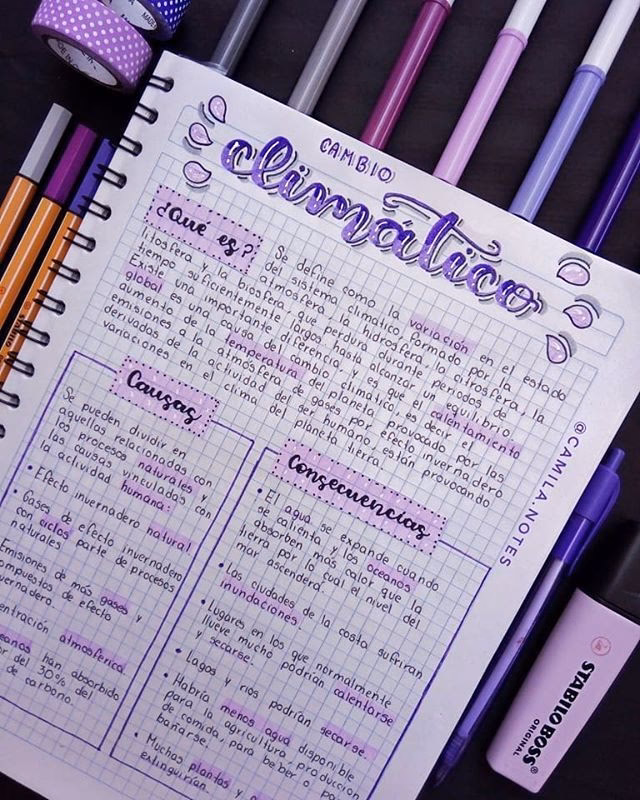 CAMBIO
climático
¿Qué es?
Se define como la variación en el estado
del sistema climatico, formado por la
atmosfera, la hidrosfera, la citrosfera, la
litosfera y la biosfera, que perdura durante periodos de
tiempo suficientemente largos hasta alcanzar un equilibrio.
Existe una importante diferencia, y es que el calentamiento
global es una causa del cambio climático, es decir el
aumento de la temperatura del planeta provocado por las
emisiones a la atmósfera de gases por efecto invernadero
derivadas de la actividad del ser humano, están provocando
variaciones en el clima del planeta tierra.
Causas
Se pueden dividir en
aquellas relacionadas con
los procesos naturales y
las causas vinculadas con
la actividad humana:
• Efecto invernadero natural
• Gases de efecto invernadero
con ciclos parte de procesos
naturales
Emisiones de más gases y
compuestos de efecto
invernadero.
atmosférica
han absorbido
del 30% del
de carbono.
Consecuencias
• El agua se expande cuando
se calienta y los oceanos
absorben más calor que la
tierra por lo cual el nivel del
mar ascenderá.
• Las ciudades de la costa sufriran
inundaciones.
• Lugares en los que normalmente
llueve mucho podrían calentarse
y secarse.
• Lagos y rios podrían secarse.
• Habría menos agua disponible
para la agricultura, producción
de comida, para beber o
bañarse.
• Muchas plantas y
extinguirían.
@CAMILA.NOTES
STABILO BOSS
ORIGINAL